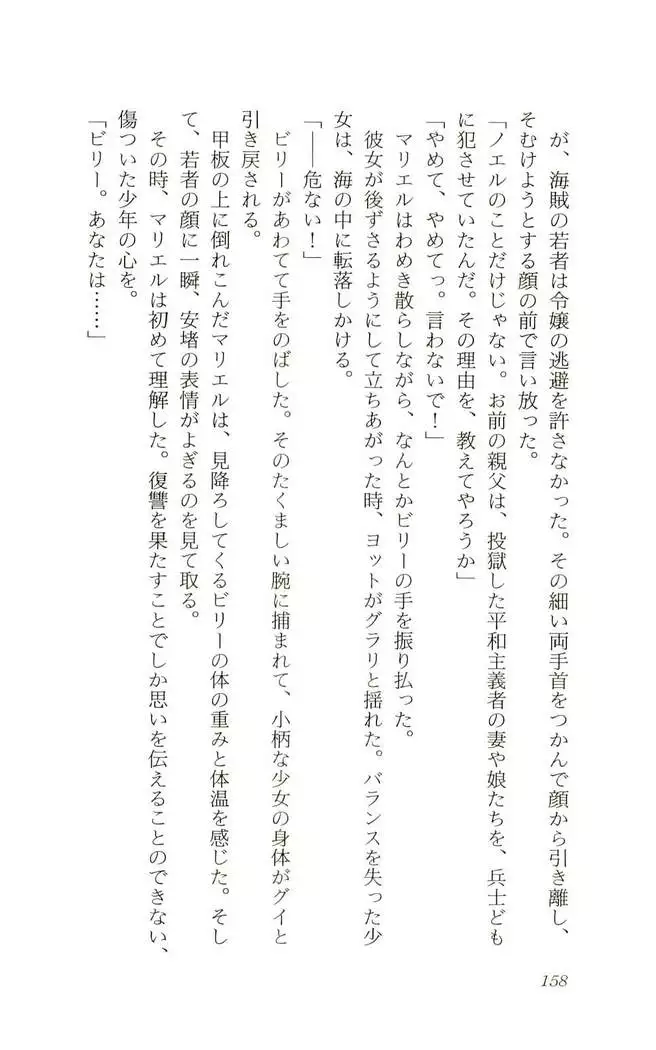 が、海賊の若者は令嬢の逃避を許さなかった。その細い両手首をつかんで顔から引き離し、
そむけようとする顔の前で言い放った。
「ノエルのことだけじゃない。お前の親父は、投獄した平和主義者の妻や娘たちを、兵士ども
に犯させていたんだ。その理由を、教えてやろうか」
「やめて、やめてっ。言わないで！」
マリエルはわめき散らしながら、なんとかビリーの手を振り払った。
彼女が後ずさるようにして立ちあがった時、ヨットがグラリと揺れた。バランスを失った少
女は、海の中に転落しかける。
「――危ない！」
ビリーがあわてて手をのばした。そのたくましい腕に捕まれて、小柄な少女の身体がグイと
引き戻される。
甲板の上に倒れこんだマリエルは、見降ろしてくるビリーの体の重みと体温を感じた。そし
て、若者の顔に一瞬、安堵の表情がよぎるのを見て取る。
その時、マリエルは初めて理解した。復讐を果たすことでしか思いを伝えることのできない、
傷ついた少年の心を。
「ビリー。あなたは……」
158